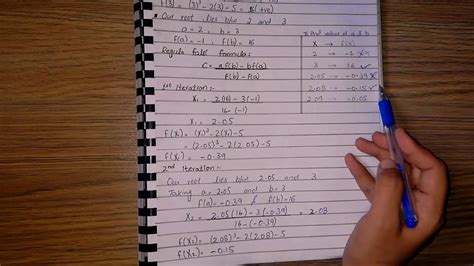 f(3) = (3)³ - 2(3) - 5 = 16 (+ve)
Our root lies b/w 2 and 3
a = 2 , b = 3
f(a) = -1 , f(b) = 16
Regula Falsi Formula:
C = af(b) - bf(a)
f(b) - f(a)
1st Iteration:
x₁ = 2(16) - 3(-1)
16 - (-1)
x₁ = 2.05
f(x₁) = (x₁)³ - 2(x₁) - 5
= (2.05)³ - 2(2.05) - 5
f(x₁) = -0.39
2nd Iteration:
Our root lies b/w 2.05 and 3
Taking a = 2.05 and b = 3
f(a) = -0.39 , f(b) = 16
x₂ = 2.05(16) - 3(-0.39) = 2.08
16 - (-0.39)
f(x₂) = (2.08)³ - 2(2.08) - 5
f(x₂) = -0.15
value of a & b
x → f(a)
2 → -1
3 → 16 ✓
2.05 → -0.39
2.08 → -0.15 ✓
2.09 → -0.05